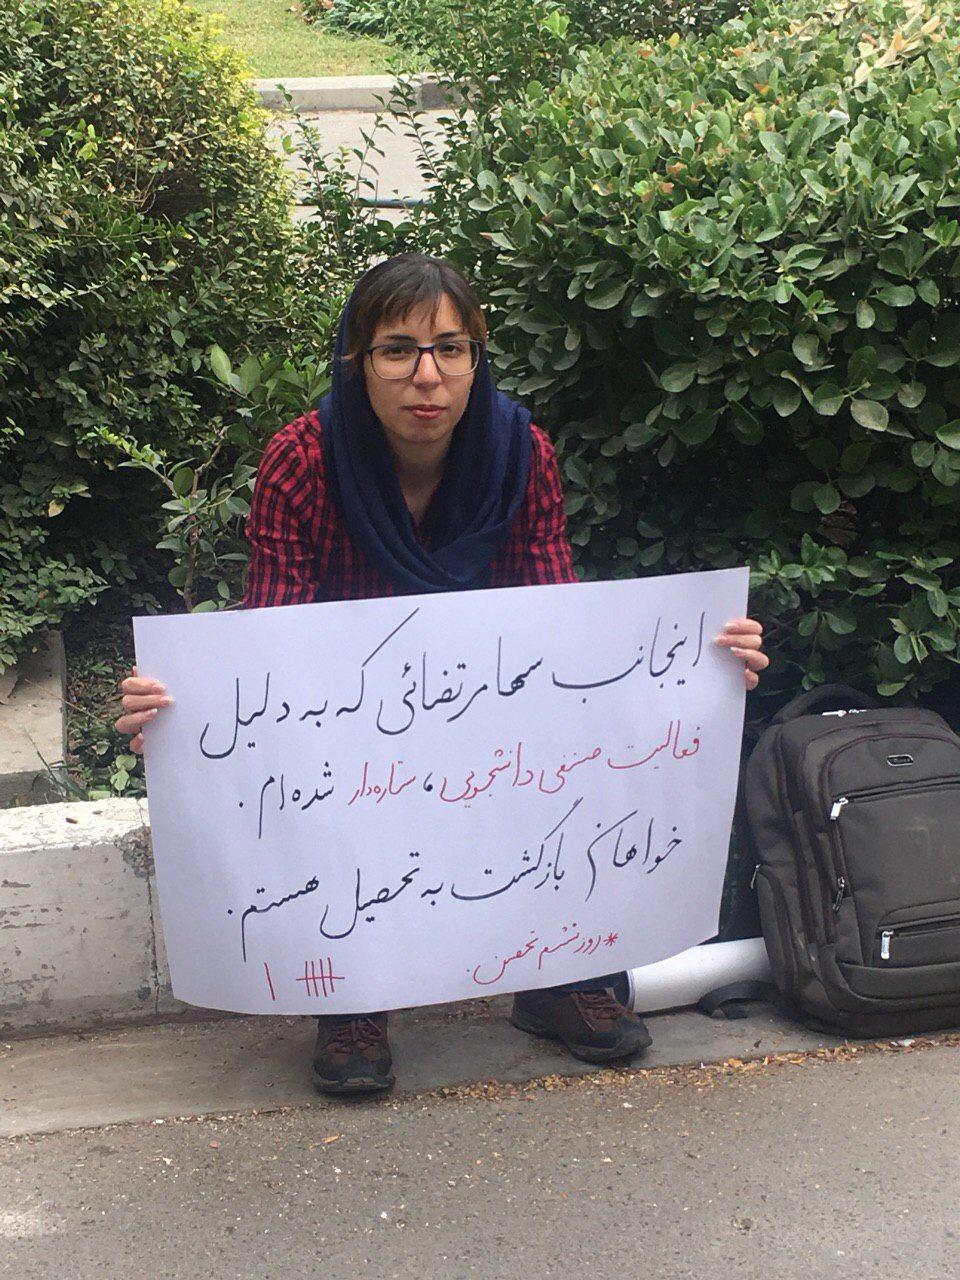 اینجانب سها مرتضائی که به دلیل
فعالیت صنفی دانشجویی، ستاره‌دار شده‌ام.
خواهان بازگشت به تحصیل هستم.
*روز ششم تحصن.